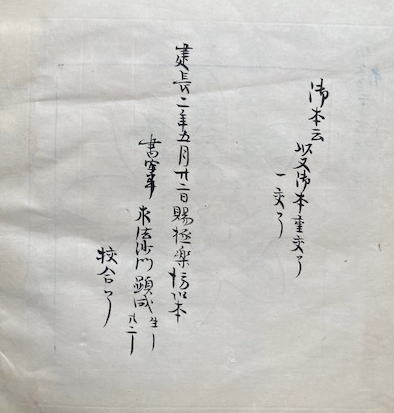 御本云
以又御本重交了
一交了
建長二年五月廿二日賜極楽坊以本
書写畢 求法沙門顕成 生一
廿二一
校合了